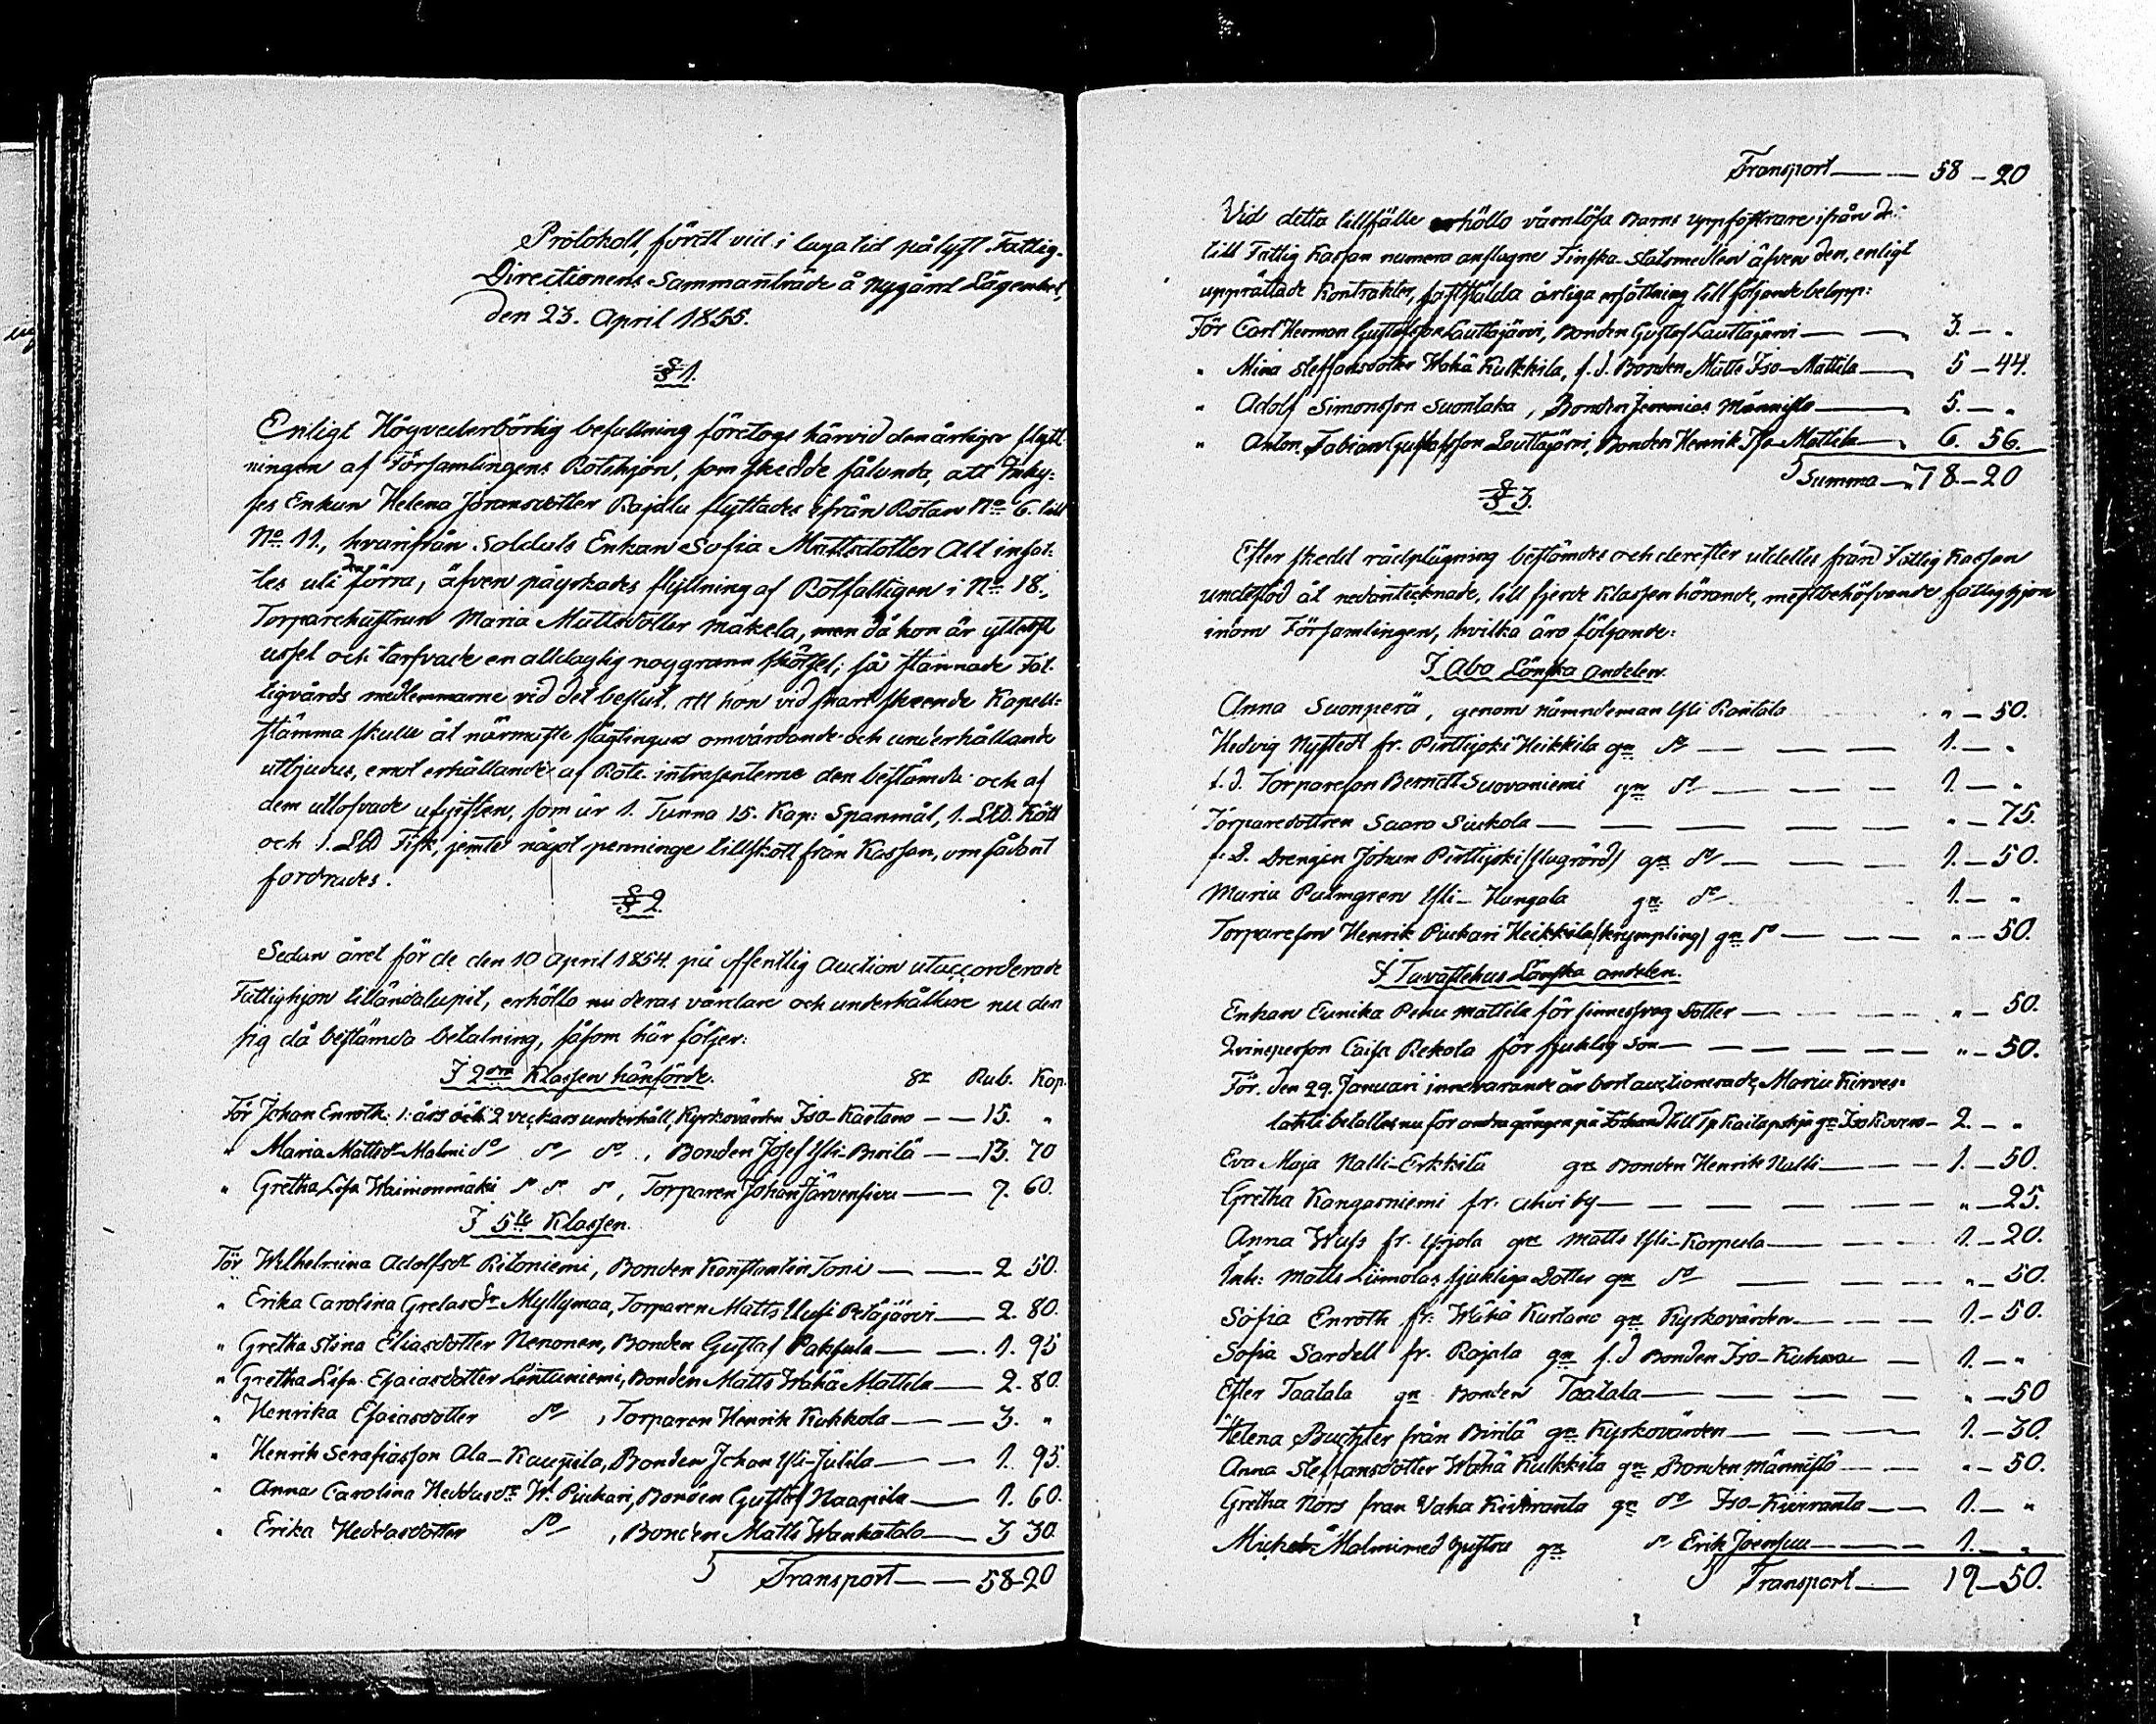 Protokoll, fördt vid i laga tid pålyst Fattig-
Directionens Sammanträde å Nygård Lägenhet,
den 23. April 1855.
§ 1.
Enligt Högvederbörlig befallning företogs härvid den årliga flytt-
ningen af Församlingens Rotehjon, som skedde sålunda, att Inhy-
ses Enkan Helena Jöransdotter Rajala flyttades ifrån Rotan No 6. till
No 11., hvarifrån Soldats Enkan Sofia Mattsdotter Alt insat-
tes uti den förra, äfven påyrkades flyttning af Rotfattigen i No 18.,
Torparehustrun Maria Mattsdotter Mäkela, men då hon är ytterst
ussel och tarfvade en alldaglig noggrann skötsel; så stannade Fat-
tigvårds medlemmarne vid det beslut, att hon vid snart skeende Kapell-
stämma skulle åt närmaste släglingars omvårdande och underhållande
utbjudas, emot erhållande af Rote intressenterne den bestämda och af
dem utlofvade afgiften, som är 1. Tunna 15. Kap: Spanmål, 1. LH. Kött
och 1. LH Fisk, jemte något penninge tillskott från Kassan, om sådant
fordrades.
§ 2.
Sedan året för de den 10 April 1854. på offentlig Auction utaccorderade
Fattighjon tilländalupit, erhöllo nu deras vårdare och underhållare nu den
sig då bestämda betalning, såsom här följer:
I 2dra Klassen hänförde. Sr Rub. Kop.
För Johan Enroth: 1: års och 2 veckors underhåll, Kyrkovärden Iso-Kartano — — 15. "
" Maria Mattsdr Malmi do do do, Bonden Josef Yli-Birilä — — 13. 70
" Gretha Lisa Wainionmäki do do do, Torparen Johan Järvensivu — — 7. 60.
I 5te Klassen.
För Wilhelmina Adolfsdr Ritoniemi, Bonden Konstantin Joni — — 2 50.
" Erika Carolina Gretasdr Myllymaa, Torparen Matts Uusi Petäjärvi — 2. 80.
" Gretha Stina Eliasdotter Nenonen, Bonden Gustaf Pakkala — — 1. 95
" Gretha Lisa Esaiasdotter Lintuniemi, Bonden Matts Wähä Mattila — 2. 80.
" Henrika Esaiasdotter do, Torparen Henrik Kukkola — — 3. "
" Henrik Serafiasson Ala-Kauppila, Bonden Johan Yli-Juhila — — 1. 95.
" Anna Carolina Heddasdr W. Piukari, Bonden Gustaf Naapila — 1. 60.
" Erika Heddasdotter do, Bonden Matts Wanhatalo — 3 30.
Transport — — 58-20
Transport — — 58 - 20
Vid detta tillfälle erhöllo värnlösa Barns uppfostrare ifrån de
till Fattig Kassan numera anslagne Finska Statsmedlen äfven den, enligt
upprättade Kontrakter, fastställda årliga ersättning till följande belopp:
För Carl Herman Gustafsson Lauttajärvi, Bonden Gustaf Lauttajärvi — — 3. — "
" Mina Steffansdotter Wähä Kulkkila, f. d. Bonden Matts Iso-Mattila — 5 - 44.
" Adolf Simonsson Suontaka, Bonden Jeremias Männistö — 5. — "
" Anton Fabian Gustafsson Lauttajärvi, Bonden Henrik Iso-Mattila — 6. 56.
Summa — 78 - 20
§ 3.
Efter skedd rådplägning bestämdes och derefter utdeltes från Fattig Kassan
understöd åt nedantecknade, till fjerde Klassen hörande, mestbehöfvande fattighjon
inom Församlingen, hvilka äro följande:
I Åbo Länska andelen.
Anna Suonperä, genom nämndeman Yli Rantala " - 50.
Hedvig Nystedt fr. Pirttijoki Heikkilä gm do — — — 1. — "
f. d. Torpareson Berndt Suovaniemi gm do — — — 1. — "
Torparedottren Saara Siukola — — — — " - 75.
f. d. Drengen Johan Pirttijoki (slagrörd) gm do — — — 1. - 50.
Maria Palmgren Yli-Hangala gm do 1. — "
Torpareson Henrik Piukari Heikkilä (krympling) gm do — — — " - 50.
I Tavastehus Länska andelen.
Enkan Eunika Peku Mattila för sinnessvag dotter — — — " - 50.
Qvinsperson Caisa Rekola för sjuklig son — — — — " - 50.
För. den 29. Januari innevarande år bort auctionerade Maria Kirves-
lahti betaltes nu för andra gången på förhand till Tp gm Iso Kuvera - 2. — "
Eva Maja Nalli-Erkkilä gm Bonden Henrik Nalli — — 1. - 50.
Gretha Kangasniemi fr. by — — — — " - 25.
Anna Wass fr. Yrjola gm Matts Yli-Korpula — — — 1. - 20.
Inh: Matts Liimolas sjukliga Dotter gm do — — — " - 50.
Sofia Enroth fr: Wähä Kartano gm Kyrkovärden — — — 1. - 50.
Sofia Sardell fr. Rajala gm f. d Bonden Iso-Kuhna — — 1. — "
Ester Taatala gm Bonden Taatala — — — — " - 50
Helena Buchter från Birilä gm Kyrkovärden — — — 1. - 30.
Anna Steffansdotter Wähä Kulkkila gm Bonden Männistö — — " - 50.
Gretha Nors från Vähä Kiviranta gm do Iso-Kiviranta — — 1. — "
Michel Malmi med hustru gm do Erik Joensuu — — 1. — "
Transport — 19 - 50.